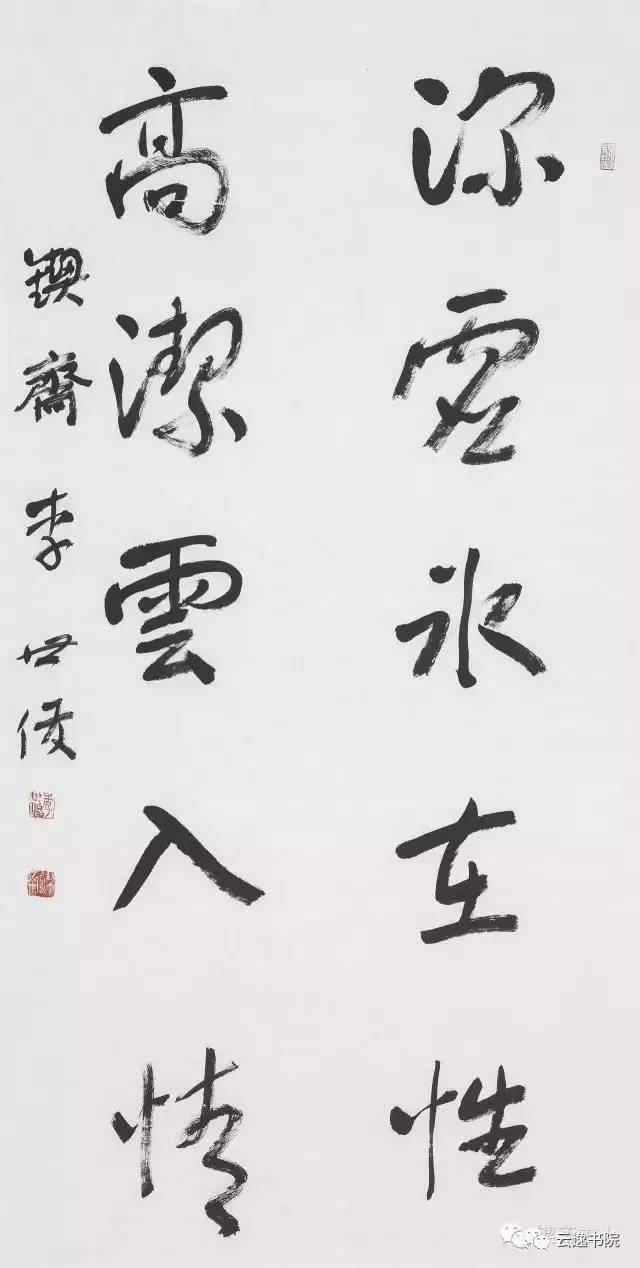 深虛氷在性
高潔雲入情
鍥齋李世俊
云逸书院